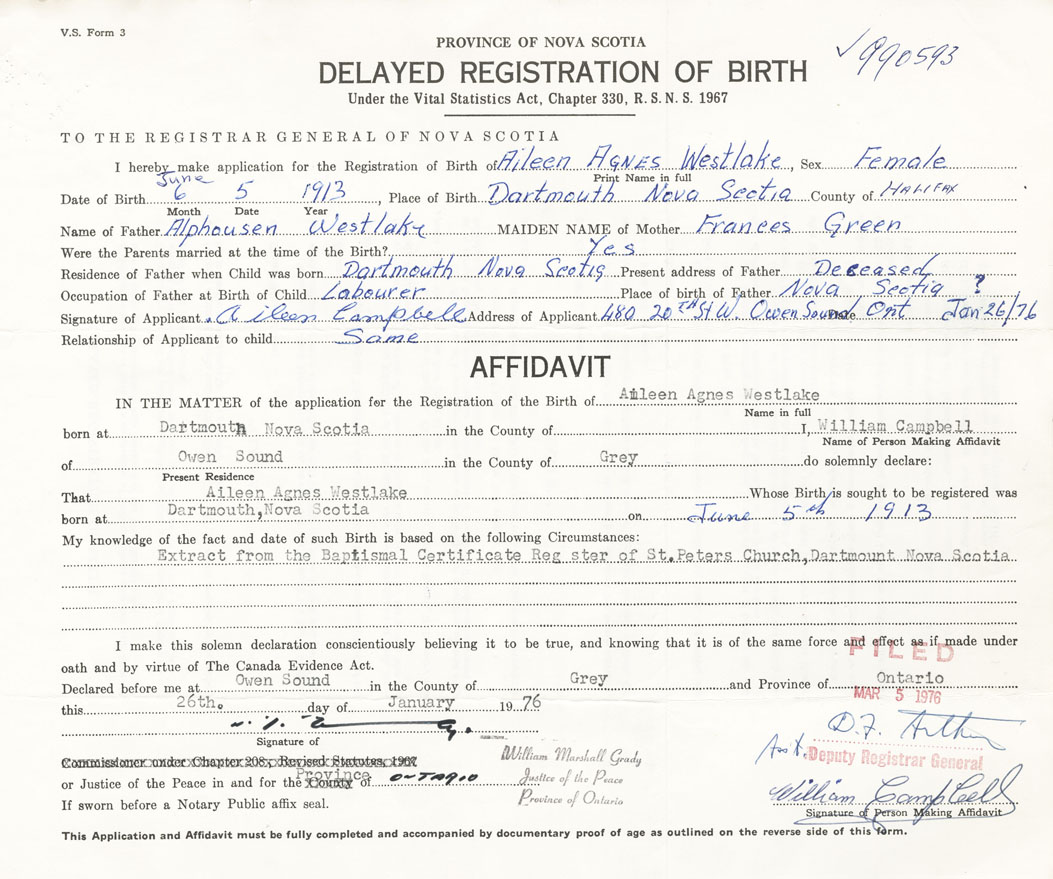 V.S. Form 3
PROVINCE OF NOVA SCOTIA
✓990593
DELAYED REGISTRATION OF BIRTH
Under the Vital Statistics Act, Chapter 330, R. S. N. S. 1967
TO THE REGISTRAR GENERAL OF NOVA SCOTIA
I hereby make application for the Registration of Birth of Aileen AGNES Westlake, Sex Female
June Print Name in full
Date of Birth 6 5 1913, Place of Birth Dartmouth Nova Scotia County of HALIFAX
Month Date Year
Name of Father Alphousen Westlake MAIDEN NAME of Mother Frances Green
Were the Parents married at the time of the Birth? Yes
Residence of Father when Child was born Dartmouth Nova Scotia Present address of Father Deceased
Occupation of Father at Birth of Child Labourer Place of birth of Father Nova Scotia ?
Signature of Applicant Aileen Campbell Address of Applicant 480 20TH St W. Owen Sound Date Ont Jan 26/76
Relationship of Applicant to child Same
AFFIDAVIT
IN THE MATTER of the application for the Registration of the Birth of Aileen Agnes Westlake
Name in full
born at Dartmouth Nova Scotia in the County of I, William Campbell
Name of Person Making Affidavit
of Owen Sound in the County of Grey do solemnly declare:
Present Residence
That Aileen Agnes Westlake Whose Birth is sought to be registered was
born at Dartmouth, Nova Scotia on June 5th 1913
My knowledge of the fact and date of such Birth is based on the following Circumstances:
Extract from the Baptismal Certificate Reg ster of St.Peters Church,Dartmount Nova Scotia
I make this solemn declaration conscientiously believing it to be true, and knowing that it is of the same force and effect as if made under
oath and by virtue of The Canada Evidence Act.
FILED
Declared before me at Owen Sound in the County of Grey and Province of Ontario
MAR 5 1976
this 26th. day of January 1976
Signature of
Ass't. Deputy Registrar General
Commissioner under Chapter 208, Revised Statutes, 1967
or Justice of the Peace in and for the County Province of ONTARIO
If sworn before a Notary Public affix seal.
William Marshall Grady
Justice of the Peace
Province of Ontario
William Campbell
Signature of Person Making Affidavit
This Application and Affidavit must be fully completed and accompanied by documentary proof of age as outlined on the reverse side of this form.